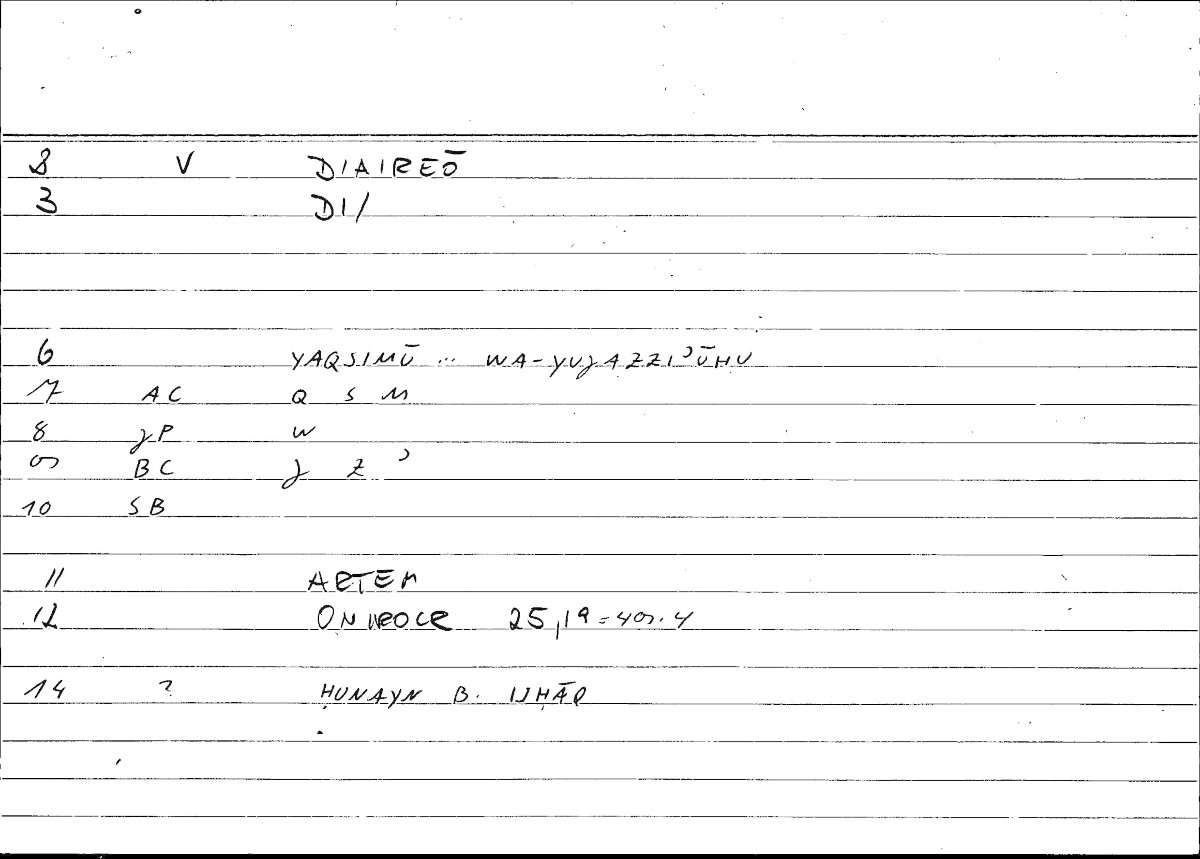 8 V DIAIREŌ
3 DI/
6 YAQSIMŪ ... WA-YUJAZZI'ŪHU
7 AC Q S M
8 JP W
9 BC J Z '
10 SB
11 ARTEM
12 ONIROCR 25,19=49.4
14 ? ḤUNAYN B. ISḤĀQ